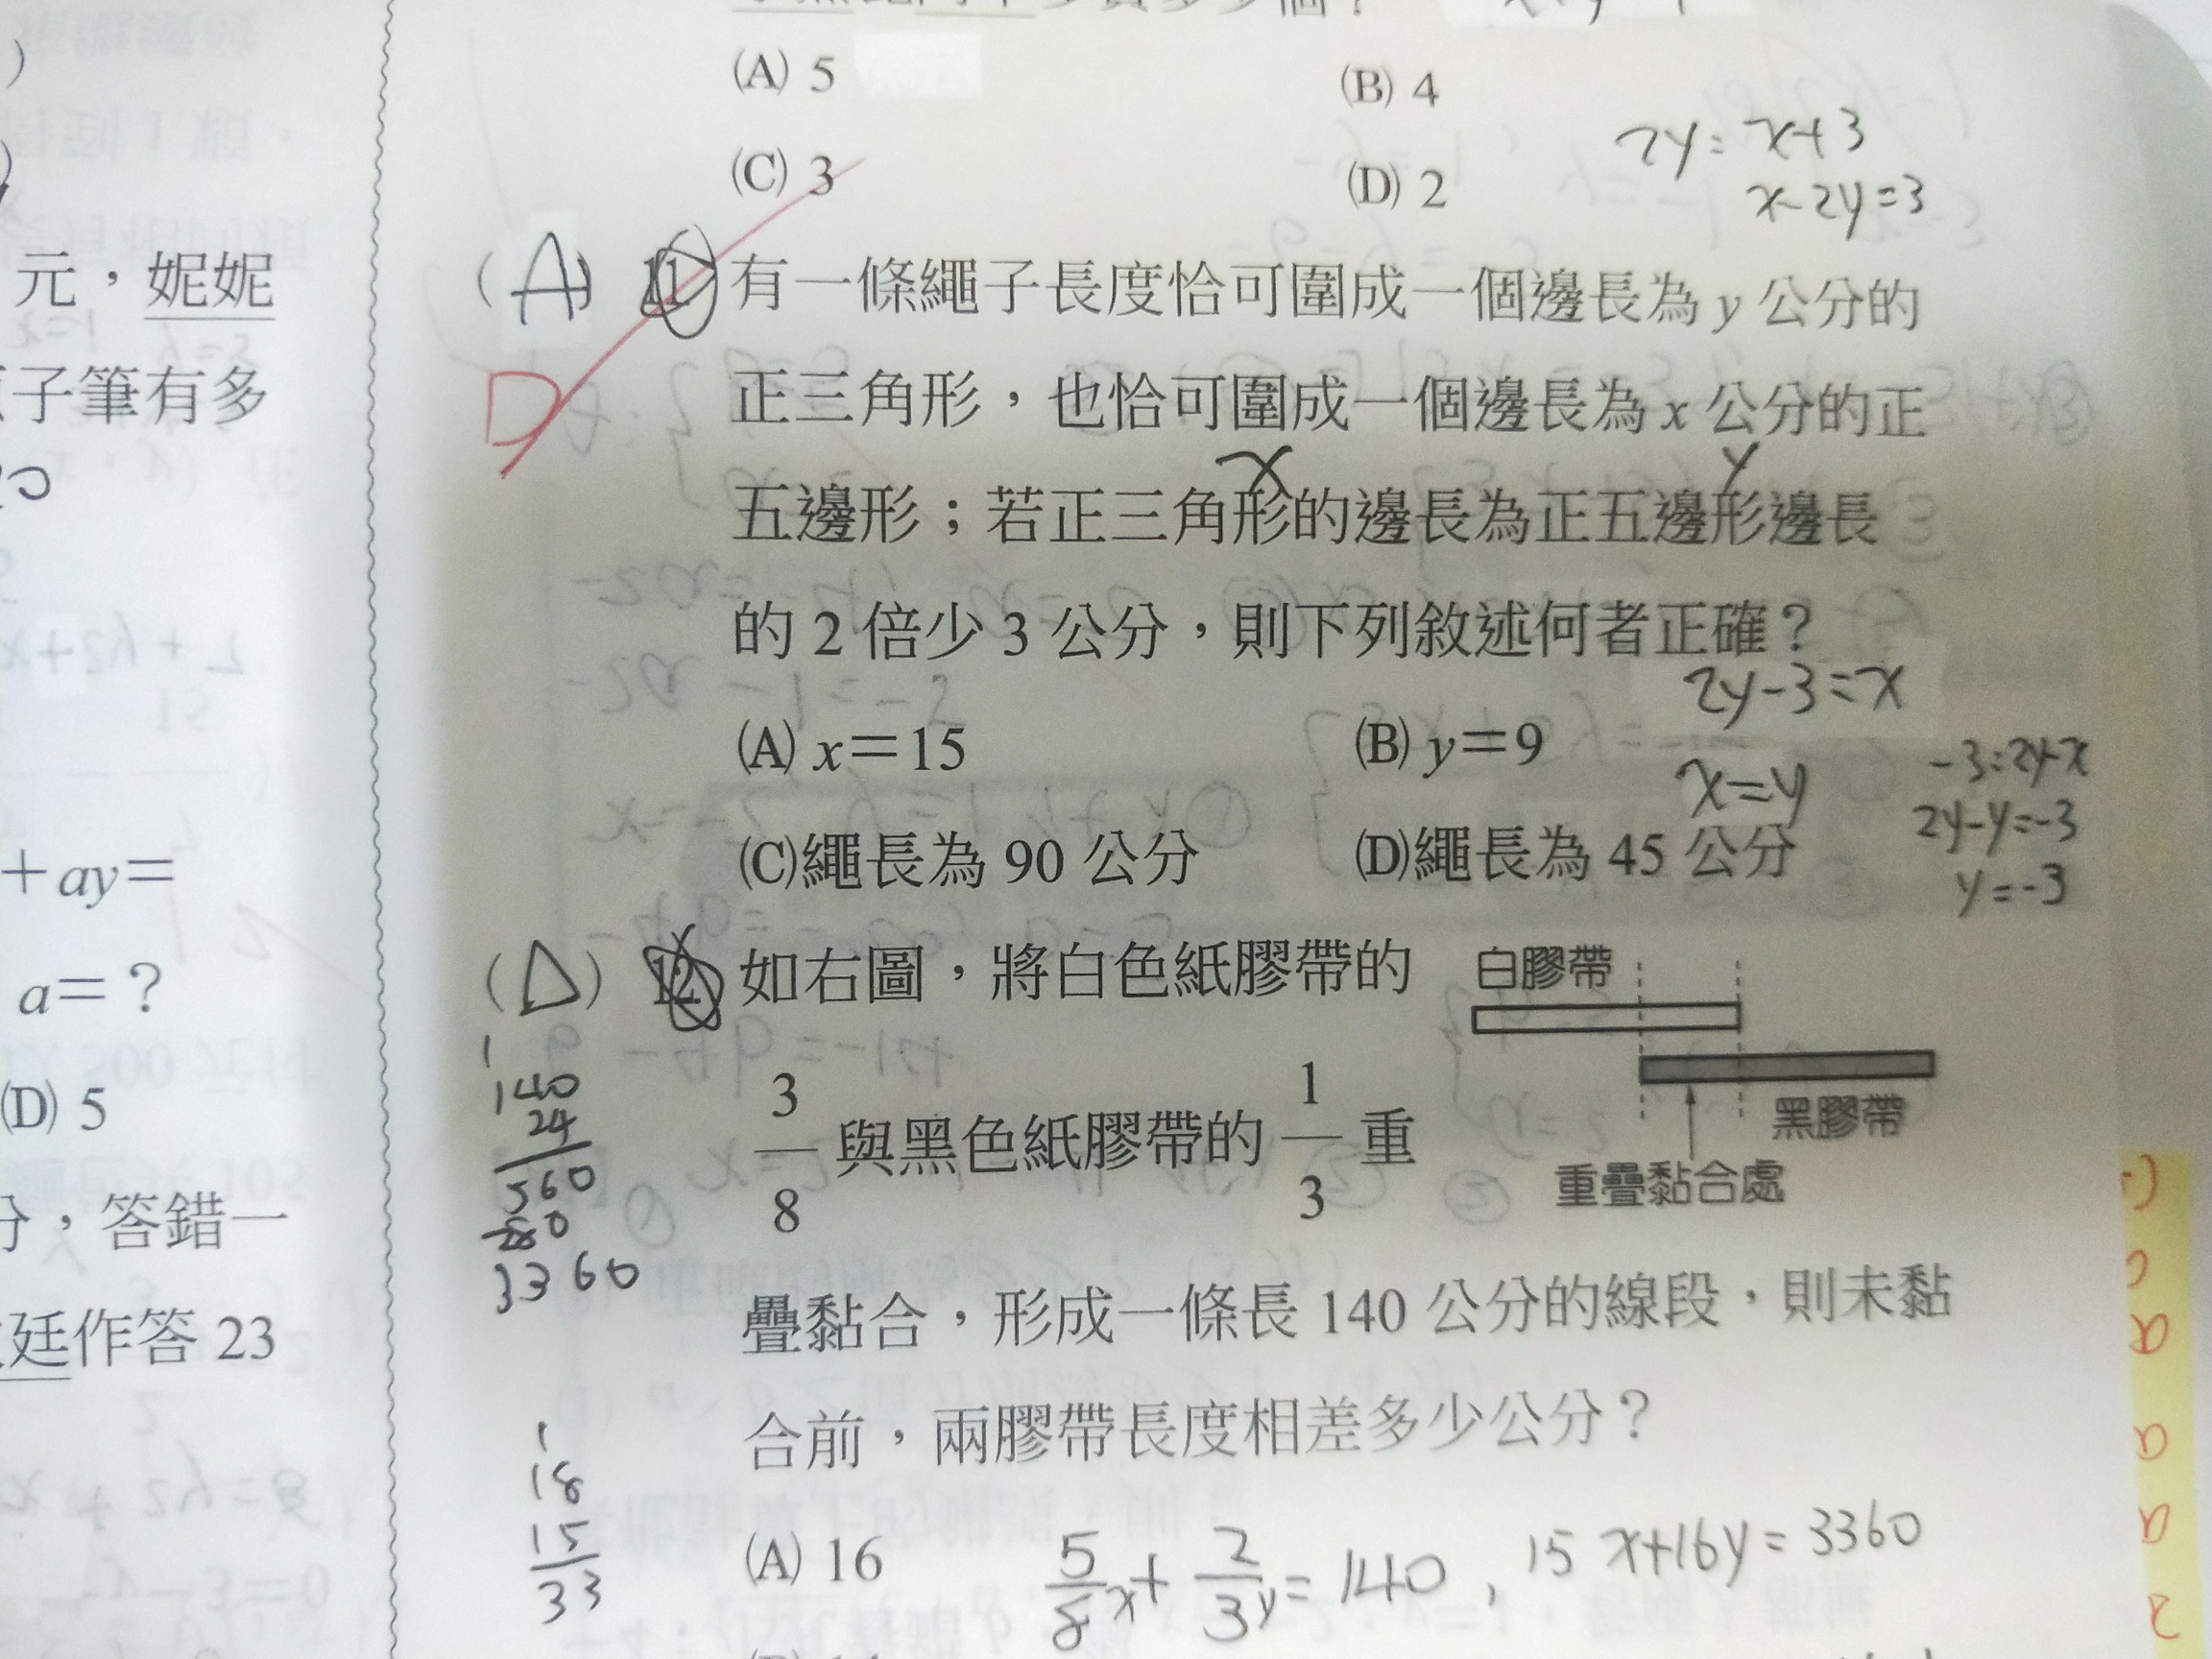 (A) 5
(B) 4
(C) 3
(D) 2
2y = x+3
x-2y=3
元，妮妮
子筆有多
+ay=
a=？
(D) 5
分，答錯一
廷作答 23
(A) 11. 有一條繩子長度恰可圍成一個邊長為 y 公分的
D
正三角形，也恰可圍成一個邊長為 x 公分的正
x y
五邊形；若正三角形的邊長為正五邊形邊長
的 2 倍少 3 公分，則下列敘述何者正確？
2y-3=x
(A) x=15
(B) y=9
x=y
-3=2y-x
2y-y=-3
y=-3
(C)繩長為 90 公分
(D)繩長為 45 公分
(D) 12. 如右圖，將白色紙膠帶的
3/8 與黑色紙膠帶的 1/3 重
白膠帶
黑膠帶
重疊黏合處
疊黏合，形成一條長 140 公分的線段，則未黏
合前，兩膠帶長度相差多少公分？
1
140
24
560
280
3360
1
18
15
33
(A) 16
5/8 x + 2/3 y = 140 , 15x+16y=3360